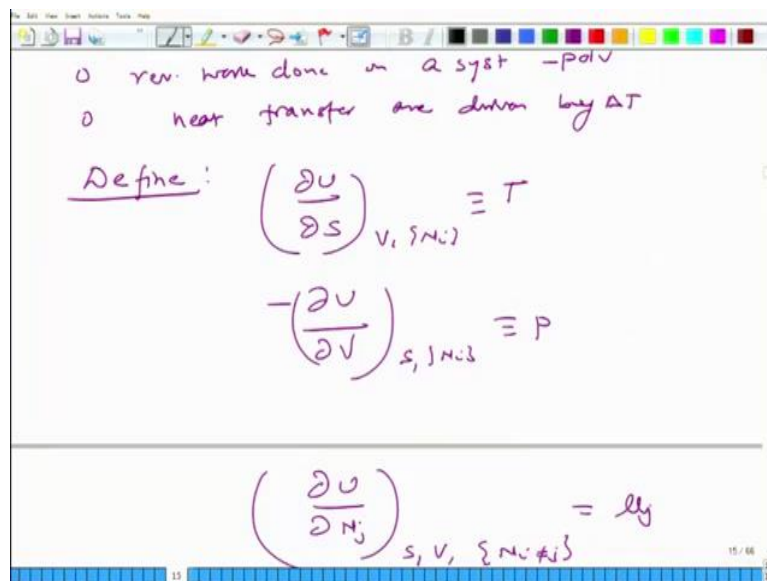 File Edit View Insert Actions Tools Help
o rev. work done on a syst -PdV
o heat transfer are driven by ΔT
Define :
(∂U/∂S)_{V, {Ni}} ≡ T
-(∂U/∂V)_{S, {Ni}} ≡ P
(∂U/∂Nj)_{S, V, {Ni≠j}} = μj
15 / 66
15